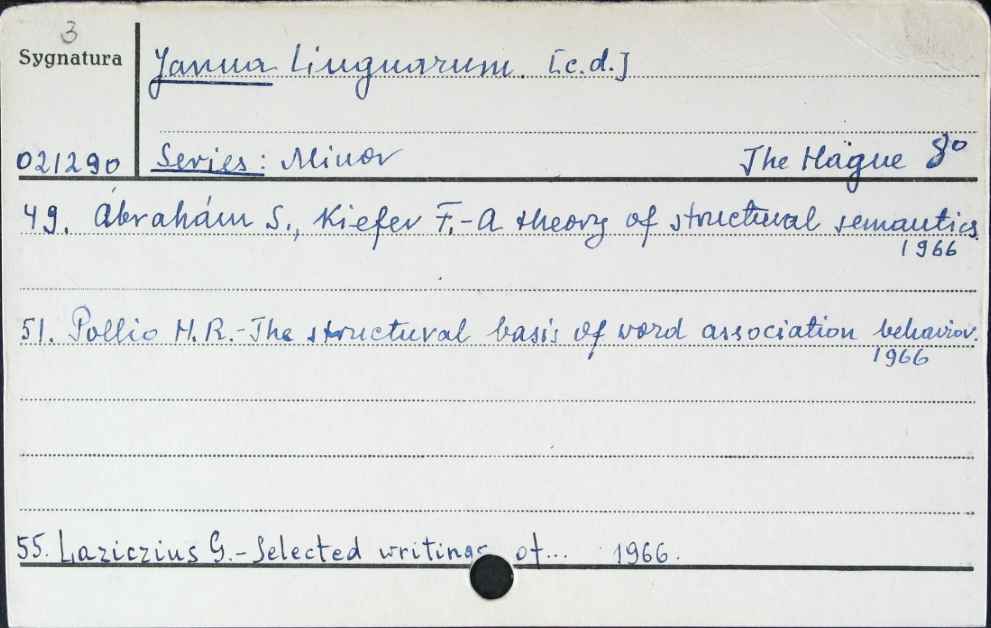 3
Sygnatura Janua Linguarum. [c.d.]
021290 Series: Minor The Hague 8°
49. Ábrahám S., Kiefer F.-A theory of structural semantics.
1966
51. Pollio H.R.-The structural basis of word association behavior.
1966
55. Laziczius G.-Selected writings of... 1966.